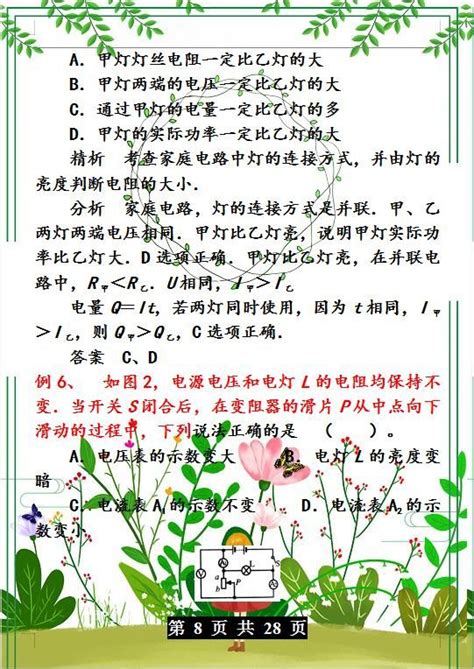 A．甲灯灯丝电阻一定比乙灯的大
B．甲灯两端的电压一定比乙灯的大
C．通过甲灯的电量一定比乙灯的多
D．甲灯的实际功率一定比乙灯的大
精析　考查家庭电路中灯的连接方式，并由灯的
亮度判断电阻的大小．
分析　家庭电路，灯的连接方式是并联．甲、乙
两灯两端电压相同．甲灯比乙灯亮，说明甲灯实际功
率比乙灯大．D 选项正确．甲灯比乙灯亮，在并联电
路中，R甲＜R乙．U 相同，I甲＞I乙
电量 Q＝It，若两灯同时使用，因为 t 相同，I甲
＞I乙，则 Q甲＞Q乙，C 选项正确．
答案　C、D
例 6、　如图 2，电源电压和电灯 L 的电阻均保持不
变．当开关 S 闭合后，在变阻器的滑片 P 从中点向下
滑动的过程中，下列说法正确的是　（　　）。
A．电压表的示数变大　　B．电灯 L 的亮度变
暗
C．电流表 A1 的示数不变　　D．电流表 A2 的示
数变小
V
L
S
a
b
P
第 8 页 共 28 页